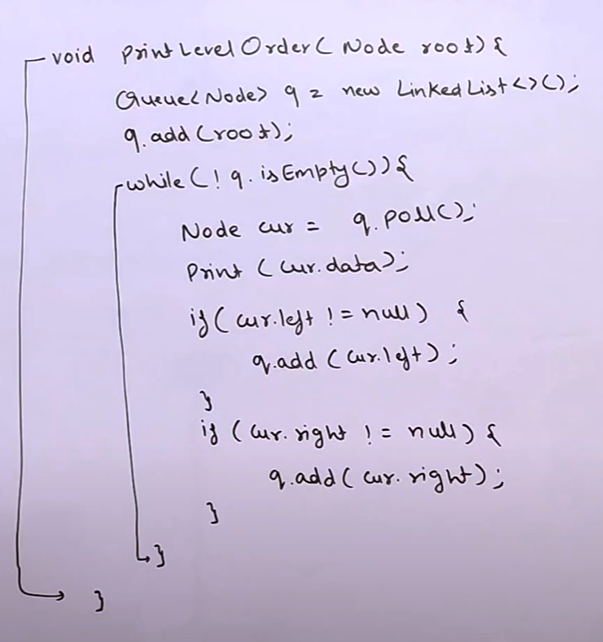 void printLevelOrder( Node root){
Queue<Node> q = new LinkedList<>();
q.add(root);
while(! q.isEmpty()){
Node cur = q.poll();
Print (cur.data);
if(cur.left != null) {
q.add(cur.left);
}
if (cur.right != null) {
q.add(cur.right);
}
}
}